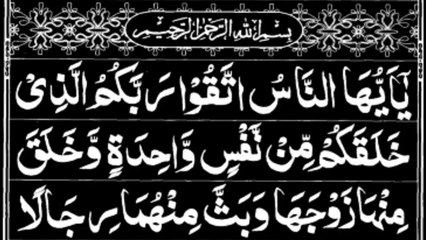 بسم الله الرحمن الرحيم
يٰٓاَيُّهَا النَّاسُ اتَّقُوْا رَبَّكُمُ الَّذِىْ
خَلَقَكُمْ مِّنْ نَّفْسٍ وَّاحِدَةٍ وَّخَلَقَ
مِنْهَا زَوْجَهَا وَبَثَّ مِنْهُمَا رِجَالًا